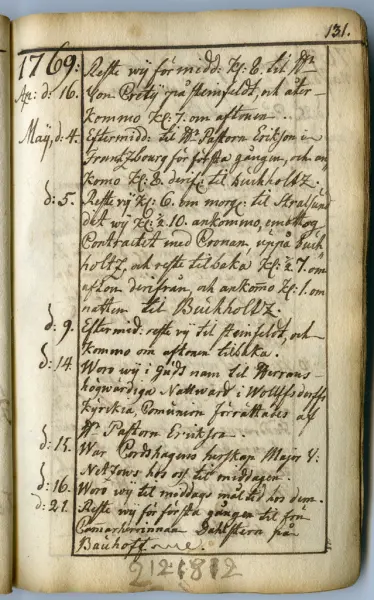 131.
1769:
Reste wÿ förmidd: Kl: 8. til Hr
Ap: d: 16. Von Cretÿ på Steinfeldt, och åter-
kommo Kl: 7. om aftonen..
Maÿ, d: 4. Eftermidd: til Hr Pastorn Erikson i
Frantzbourg för första gången, och an
komo Kl: 8. derifr: til Buchholtz.
d: 5. Reste vÿ Kl: 6. om morg: til Stralsund
dit wÿ Kl: ½ 10. ankommo, emottog
Contractet med Cronan, uppå Buch
holtz, och reste tilbaka Kl: ½ 7. om
afton derifrån, och ankom̄o Kl: 1. om
natten til Buchholtz.
d: 9. Eftermid: reste vÿ til Steinfeldt, och
kommo om aftonen tilbaka.
d: 14. Woro wÿ i Guds namn til Herrans
högwärdiga Nattward i Wolffsdorffs
Kÿrckia, Comunion förrättades af
Hr Pastorn Erickson.
d: 15. War Cordshagens herskap Major V:
Netzows hos oss til middagen.
d: 16. Woro wÿ til middags måltid hos dem.
d: 21. Reste wÿ för första gången til fru
Camarherinnan Dahlstiern på
Bauhoff
212812